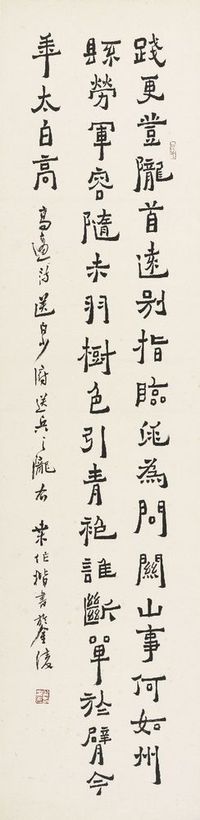 踐更登隴首遠別指臨洮為問關山事何如州
縣勞軍容隨赤羽樹色引青袍誰斷單於臂今
年太白高 高適詩送白少府送兵之隴右 作楷書於金陵